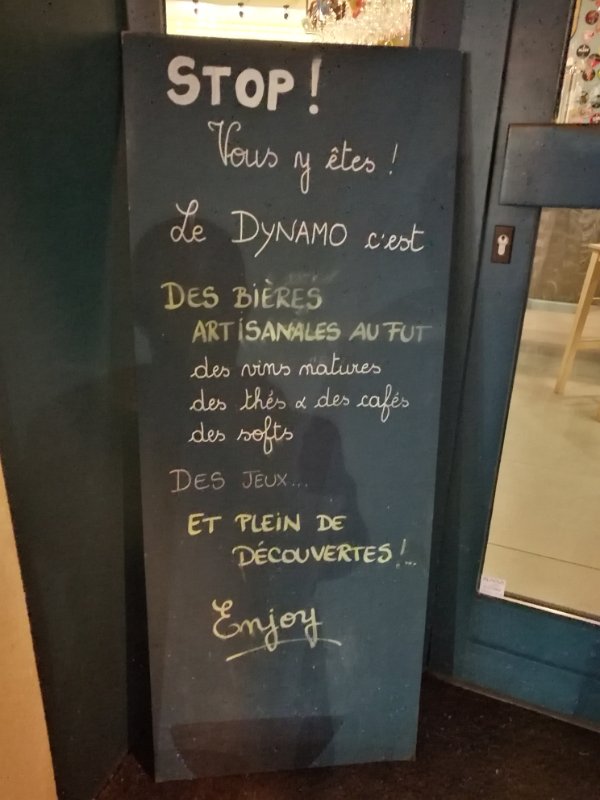 STOP !
Vous y êtes !
Le DYNAMO c'est
DES BIÈRES
ARTISANALES AU FUT
des vins natures
des thés & des cafés
des softs
DES JEUX...
ET PLEIN DE
DÉCOUVERTES !...
Enjoy